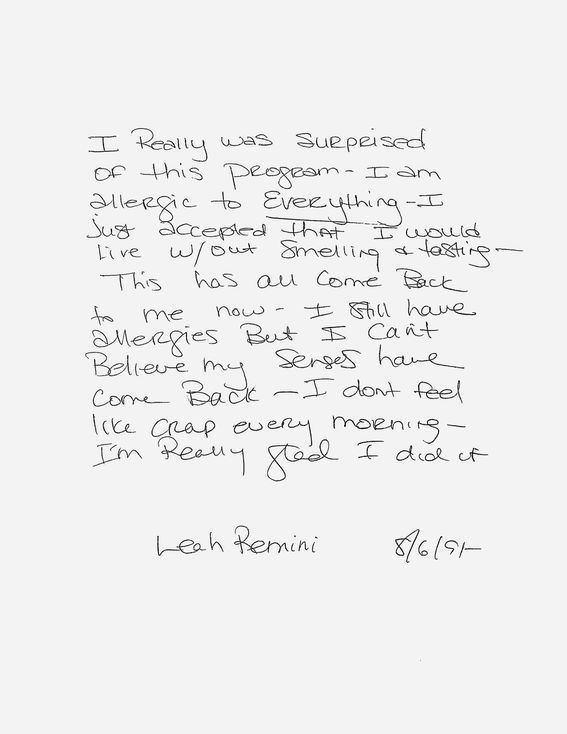 I Really was surprised
of this program - I am
allergic to Everything - I
just accepted that I would
live w/out smelling & tasting -
This has all come Back
to me now - I still have
allergies But I Can't
Believe my senses have
come Back - I dont feel
like crap every morning -
I'm Really glad I did it
Leah Remini 8/6/91